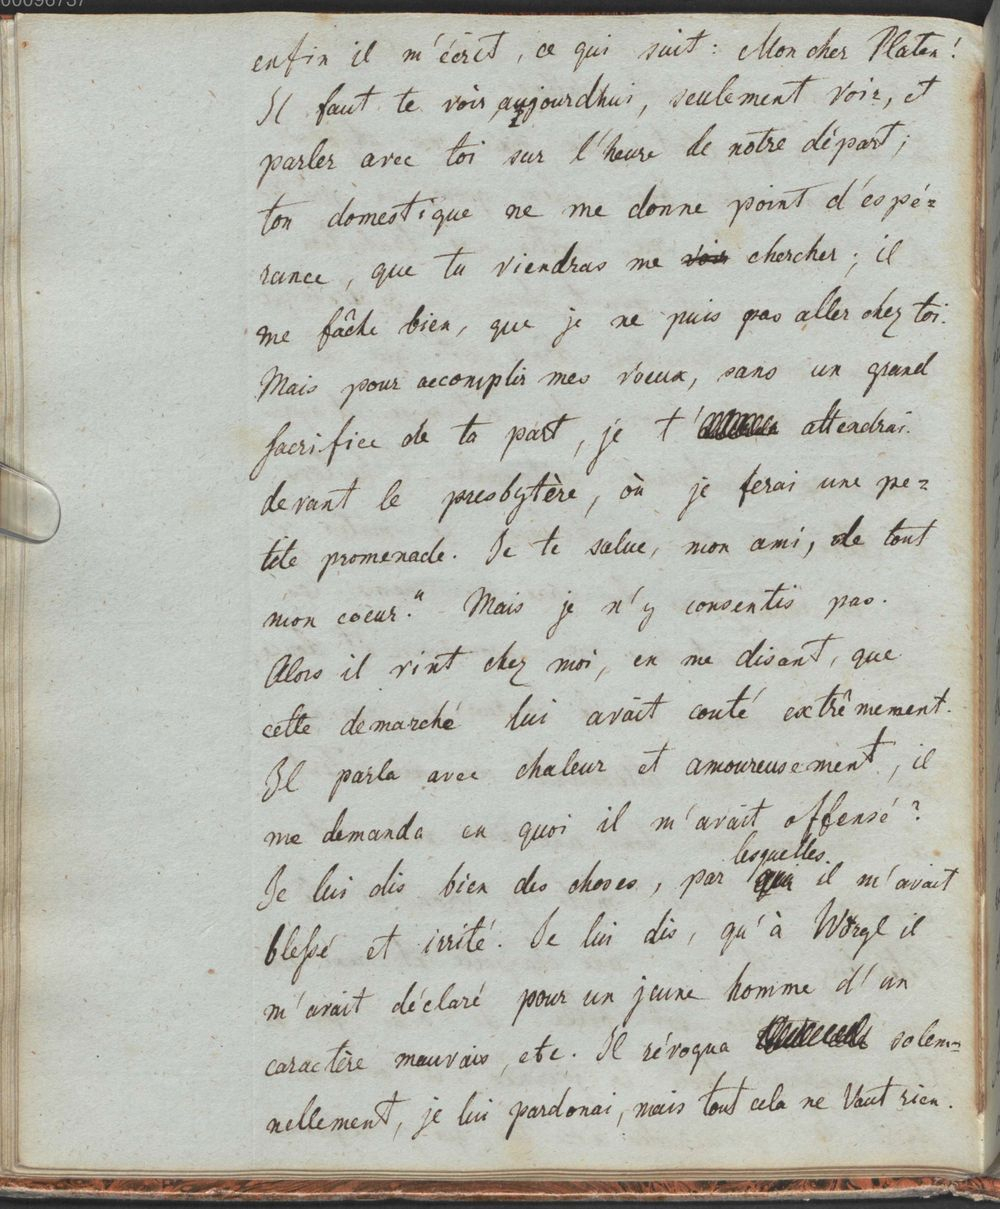 00096737
enfin il m'écrit, ce qui suit: Mon cher Platen!
Il faut te voir aujourdhui, seulement voir, et
parler avec toi sur l'heure de notre départ;
ton domestique ne me donne point d'éspé=
rance, que tu viendras me voir chercher; il
me fâche bien, que je ne puis pas aller chez toi.
Mais pour accomplir mes voeux, sans un grand
sacrifice de ta part, je t' attendrai
devant le presbytère, où je ferai une pe=
tite promenade. Je te salue, mon ami, de tout
mon coeur." Mais je n'y consentis pas.
Alors il vint chez moi, en me disant, que
cette demarché lui avait couté extrêmement.
Il parla avec chaleur et amoureusement, il
me demanda en quoi il m'avait offensé?
Je lui dis bien des choses, par qui lesquelles il m'avait
blessé et irrité. Je lui dis, qu'à Wörgl il
m'avait déclaré pour un jeune homme d'un
caractère mauvais, etc. Il révoqua solem=
nellement, je lui pardonai, mais tout cela ne vaut rien.